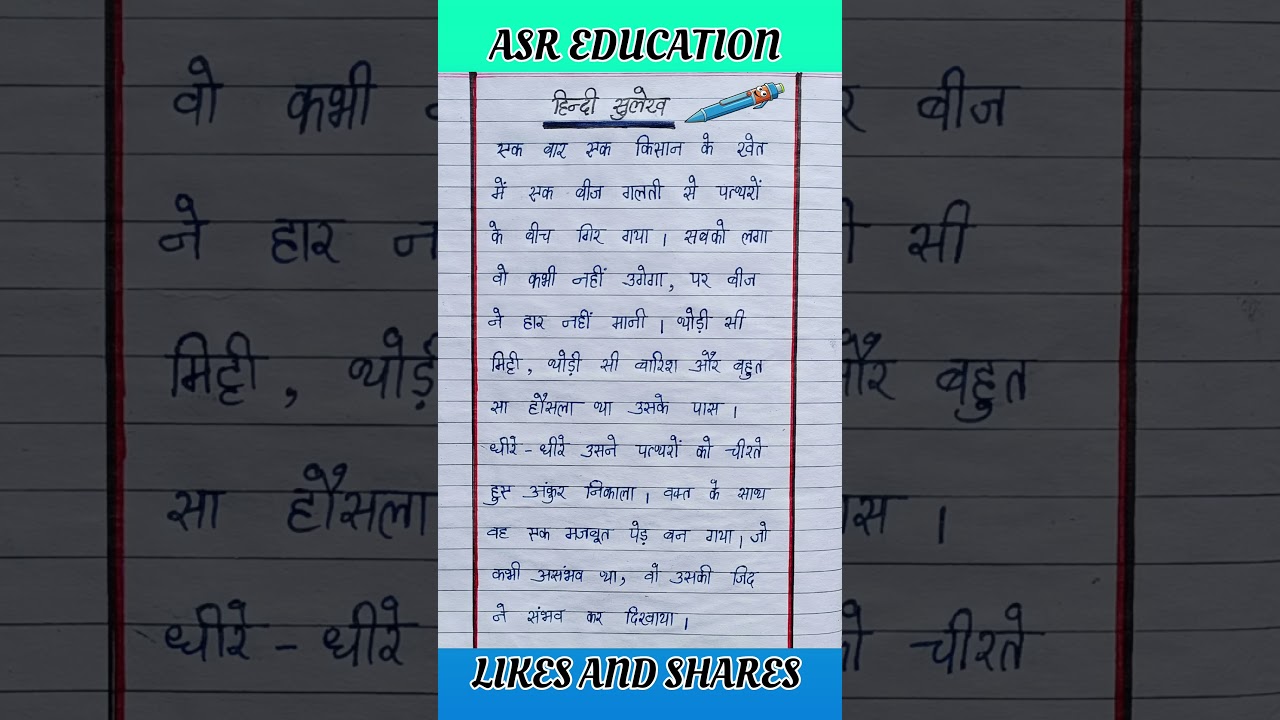 ASR EDUCATION
हिन्दी सुलेख
एक बार एक किसान के खेत
में एक बीज गलती से पत्थरों
के बीच गिर गया । सबको लगा
वो कभी नहीं उगेगा, पर बीज
ने हार नहीं मानी । थोड़ी सी
मिट्टी, थोड़ी सी बारिश और बहुत
सा हौसला था उसके पास ।
धीरे - धीरे उसने पत्थरों को चीरते
हुए अंकुर निकाला । वक्त के साथ
वह एक मजबूत पेड़ बन गया । जो
कभी असंभव था, वो उसकी जिद
ने संभव कर दिखाया ।
LIKES AND SHARES